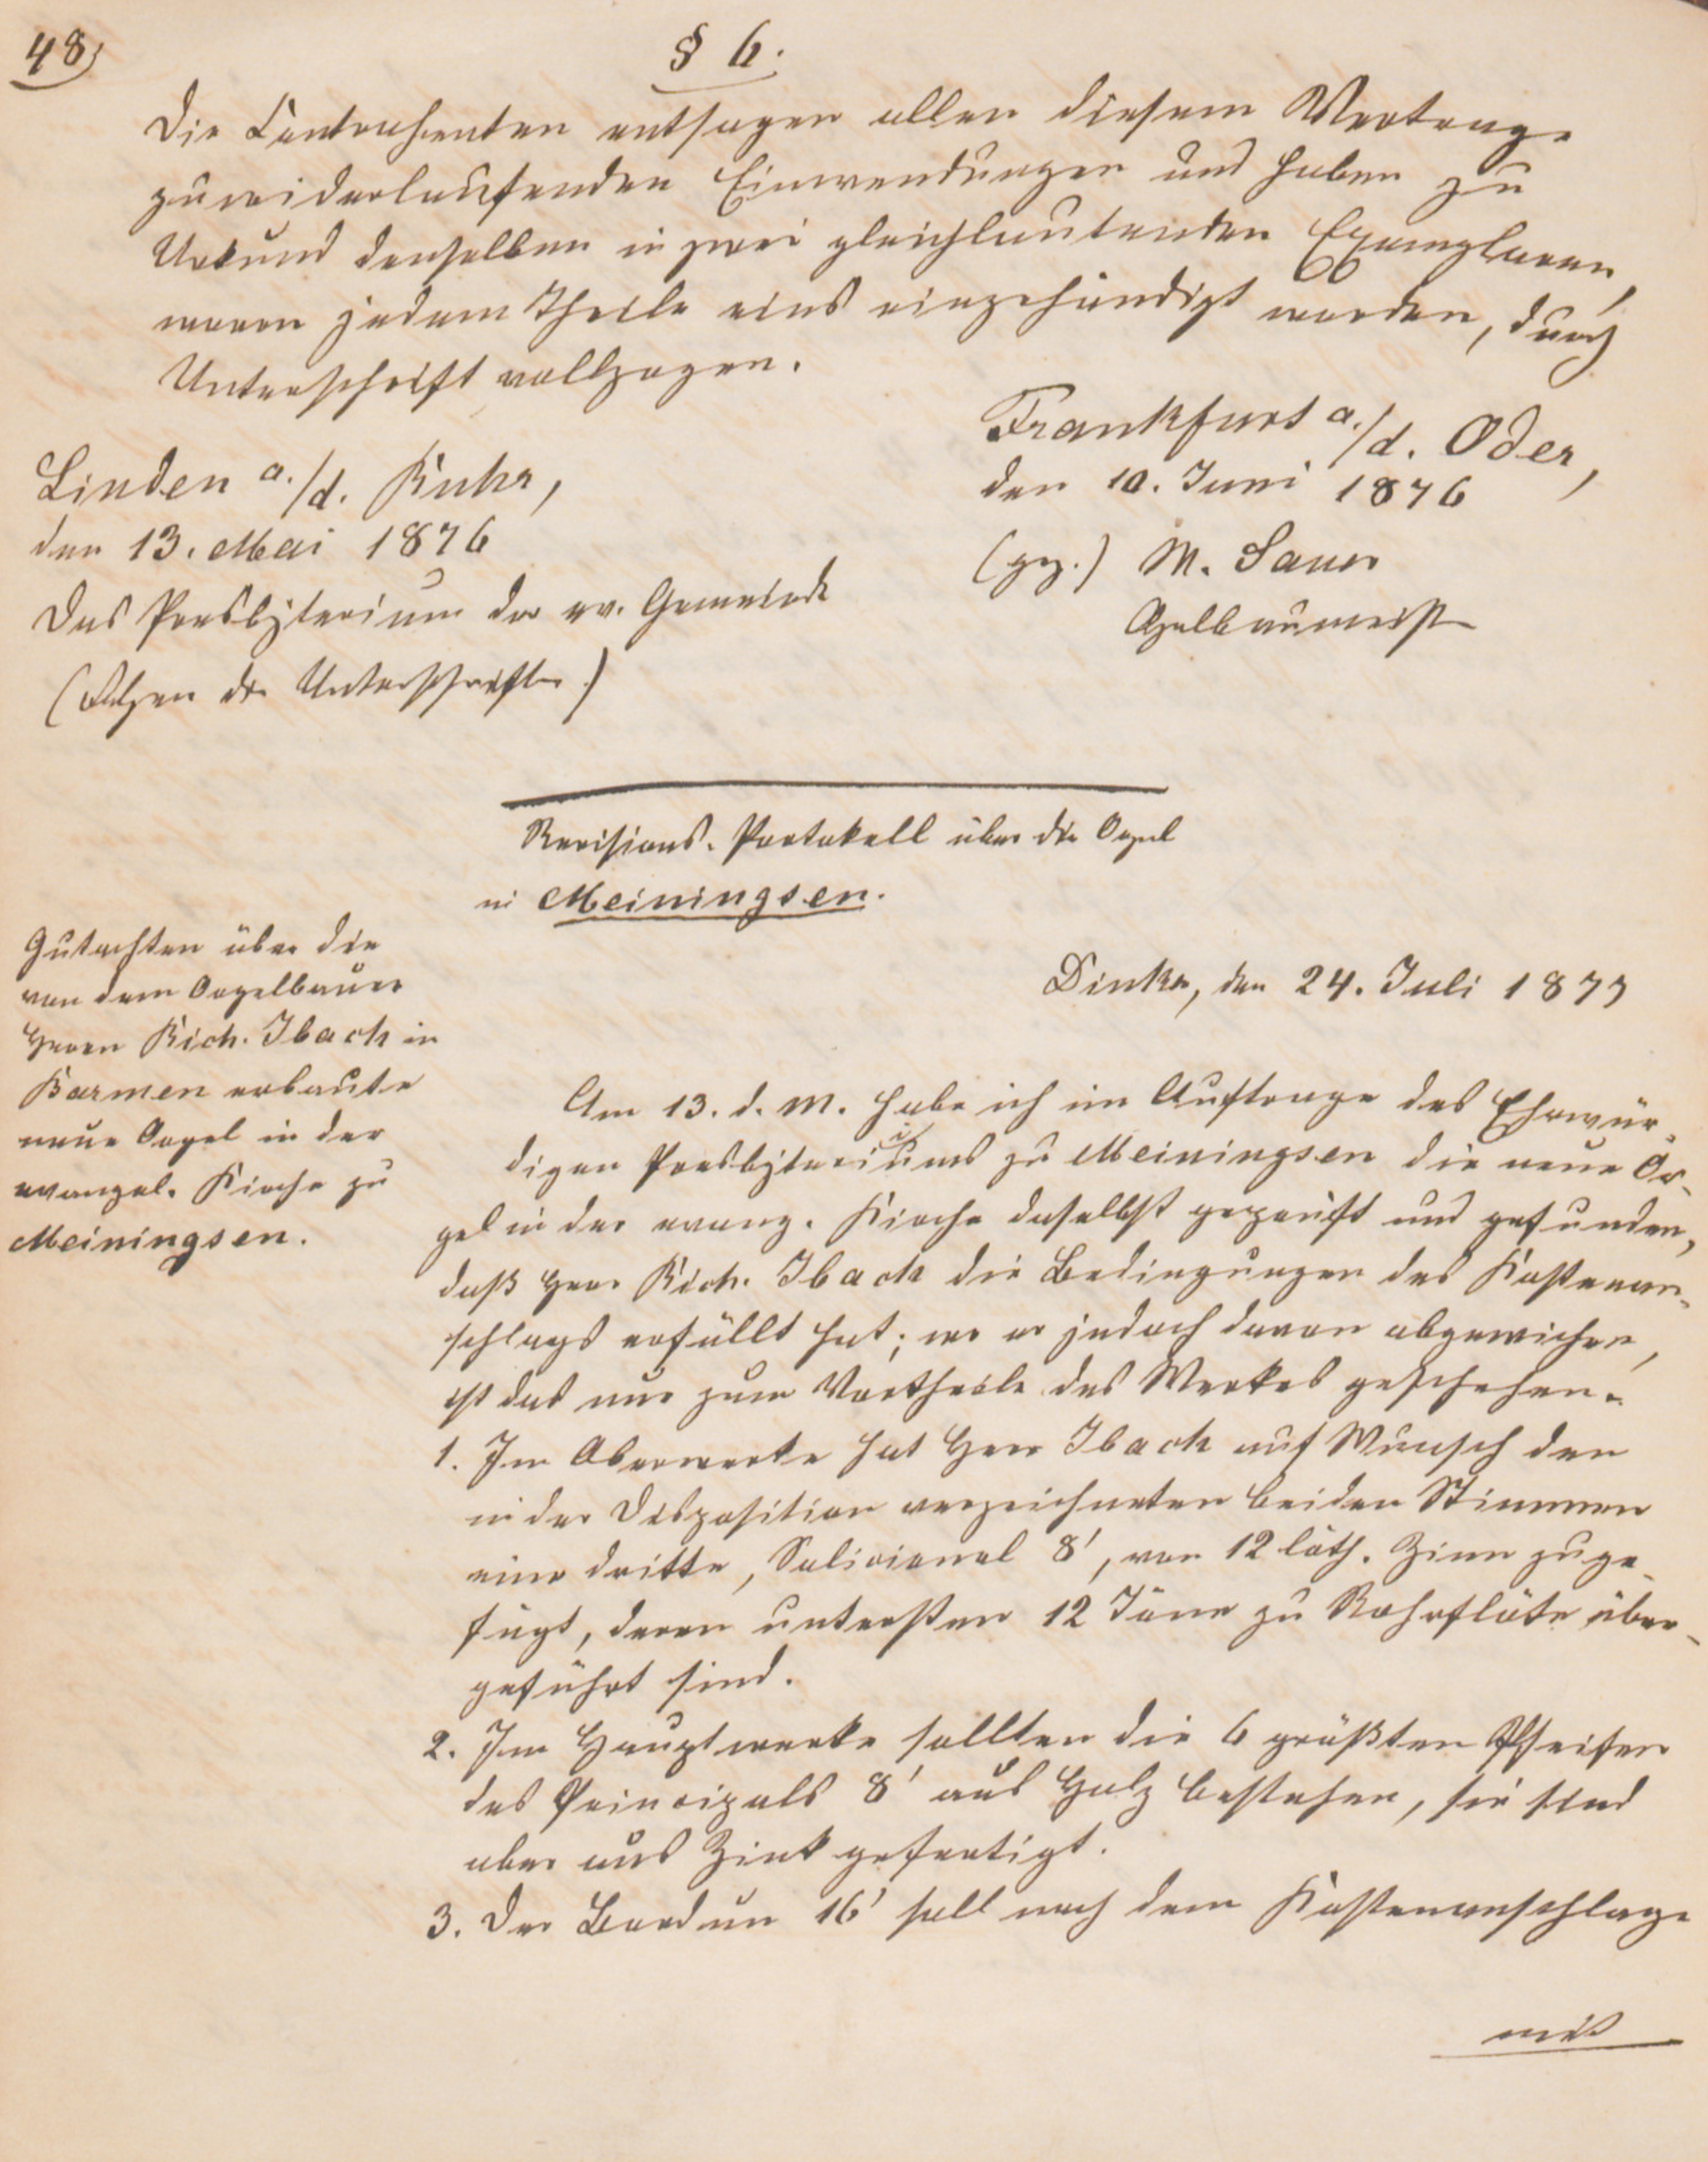 48)
§ 6.
Die Contrahenten entsagen allen diesem Vertrage
zuwiderlaufenden Einwendungen und haben zu
Urkund denselben in zwei gleichlautenden Exemplaren,
wovon jedem Theile eins eingehändigt worden, durch
Unterschrift vollzogen.
Linden a./d. Ruhr,
den 13. Mai 1876
Das Presbyterium der ev. Gemeinde
(Folgen die Unterschriften.)
Frankfurt a./d. Oder,
den 10. Juni 1876
(gez.) W. Sauer
Orgelbaumeister
Revisions-Protokoll über die Orgel
in Meiningsen.
Gutachten über die
von dem Orgelbauer
Herrn Rich. Ibach in
Barmen erbaute
neue Orgel in der
evangel. Kirche zu
Meiningsen.
Dinker, den 24. Juli 1877
Am 13. d. M. habe ich im Auftrage des Ehrwür-
digen Presbyteriums zu Meiningsen die neue Or-
gel in der evang. Kirche daselbst geprüft und gefunden,
daß Herr Rich. Ibach die Bedingungen des Kostenan-
schlags erfüllt hat; wo er jedoch davon abgewichen,
ist das nur zum Vortheile des Werkes geschehen.
1. Im Oberwerke hat Herr Ibach auf Wunsch den
in der Disposition verzeichneten beiden Stimmen
eine dritte, Salicional 8', von 12 löth. Zinn zuge-
fügt, deren untersten 12 Töne zu Rohrflöte über-
geführt sind.
2. Im Hauptwerke sollten die 6 größten Pfeifen
des Principals 8' aus Holz bestehen, sie sind
aber aus Zink gefertigt.
3. Der Bordun 16' soll nach dem Kostenanschlage
mit